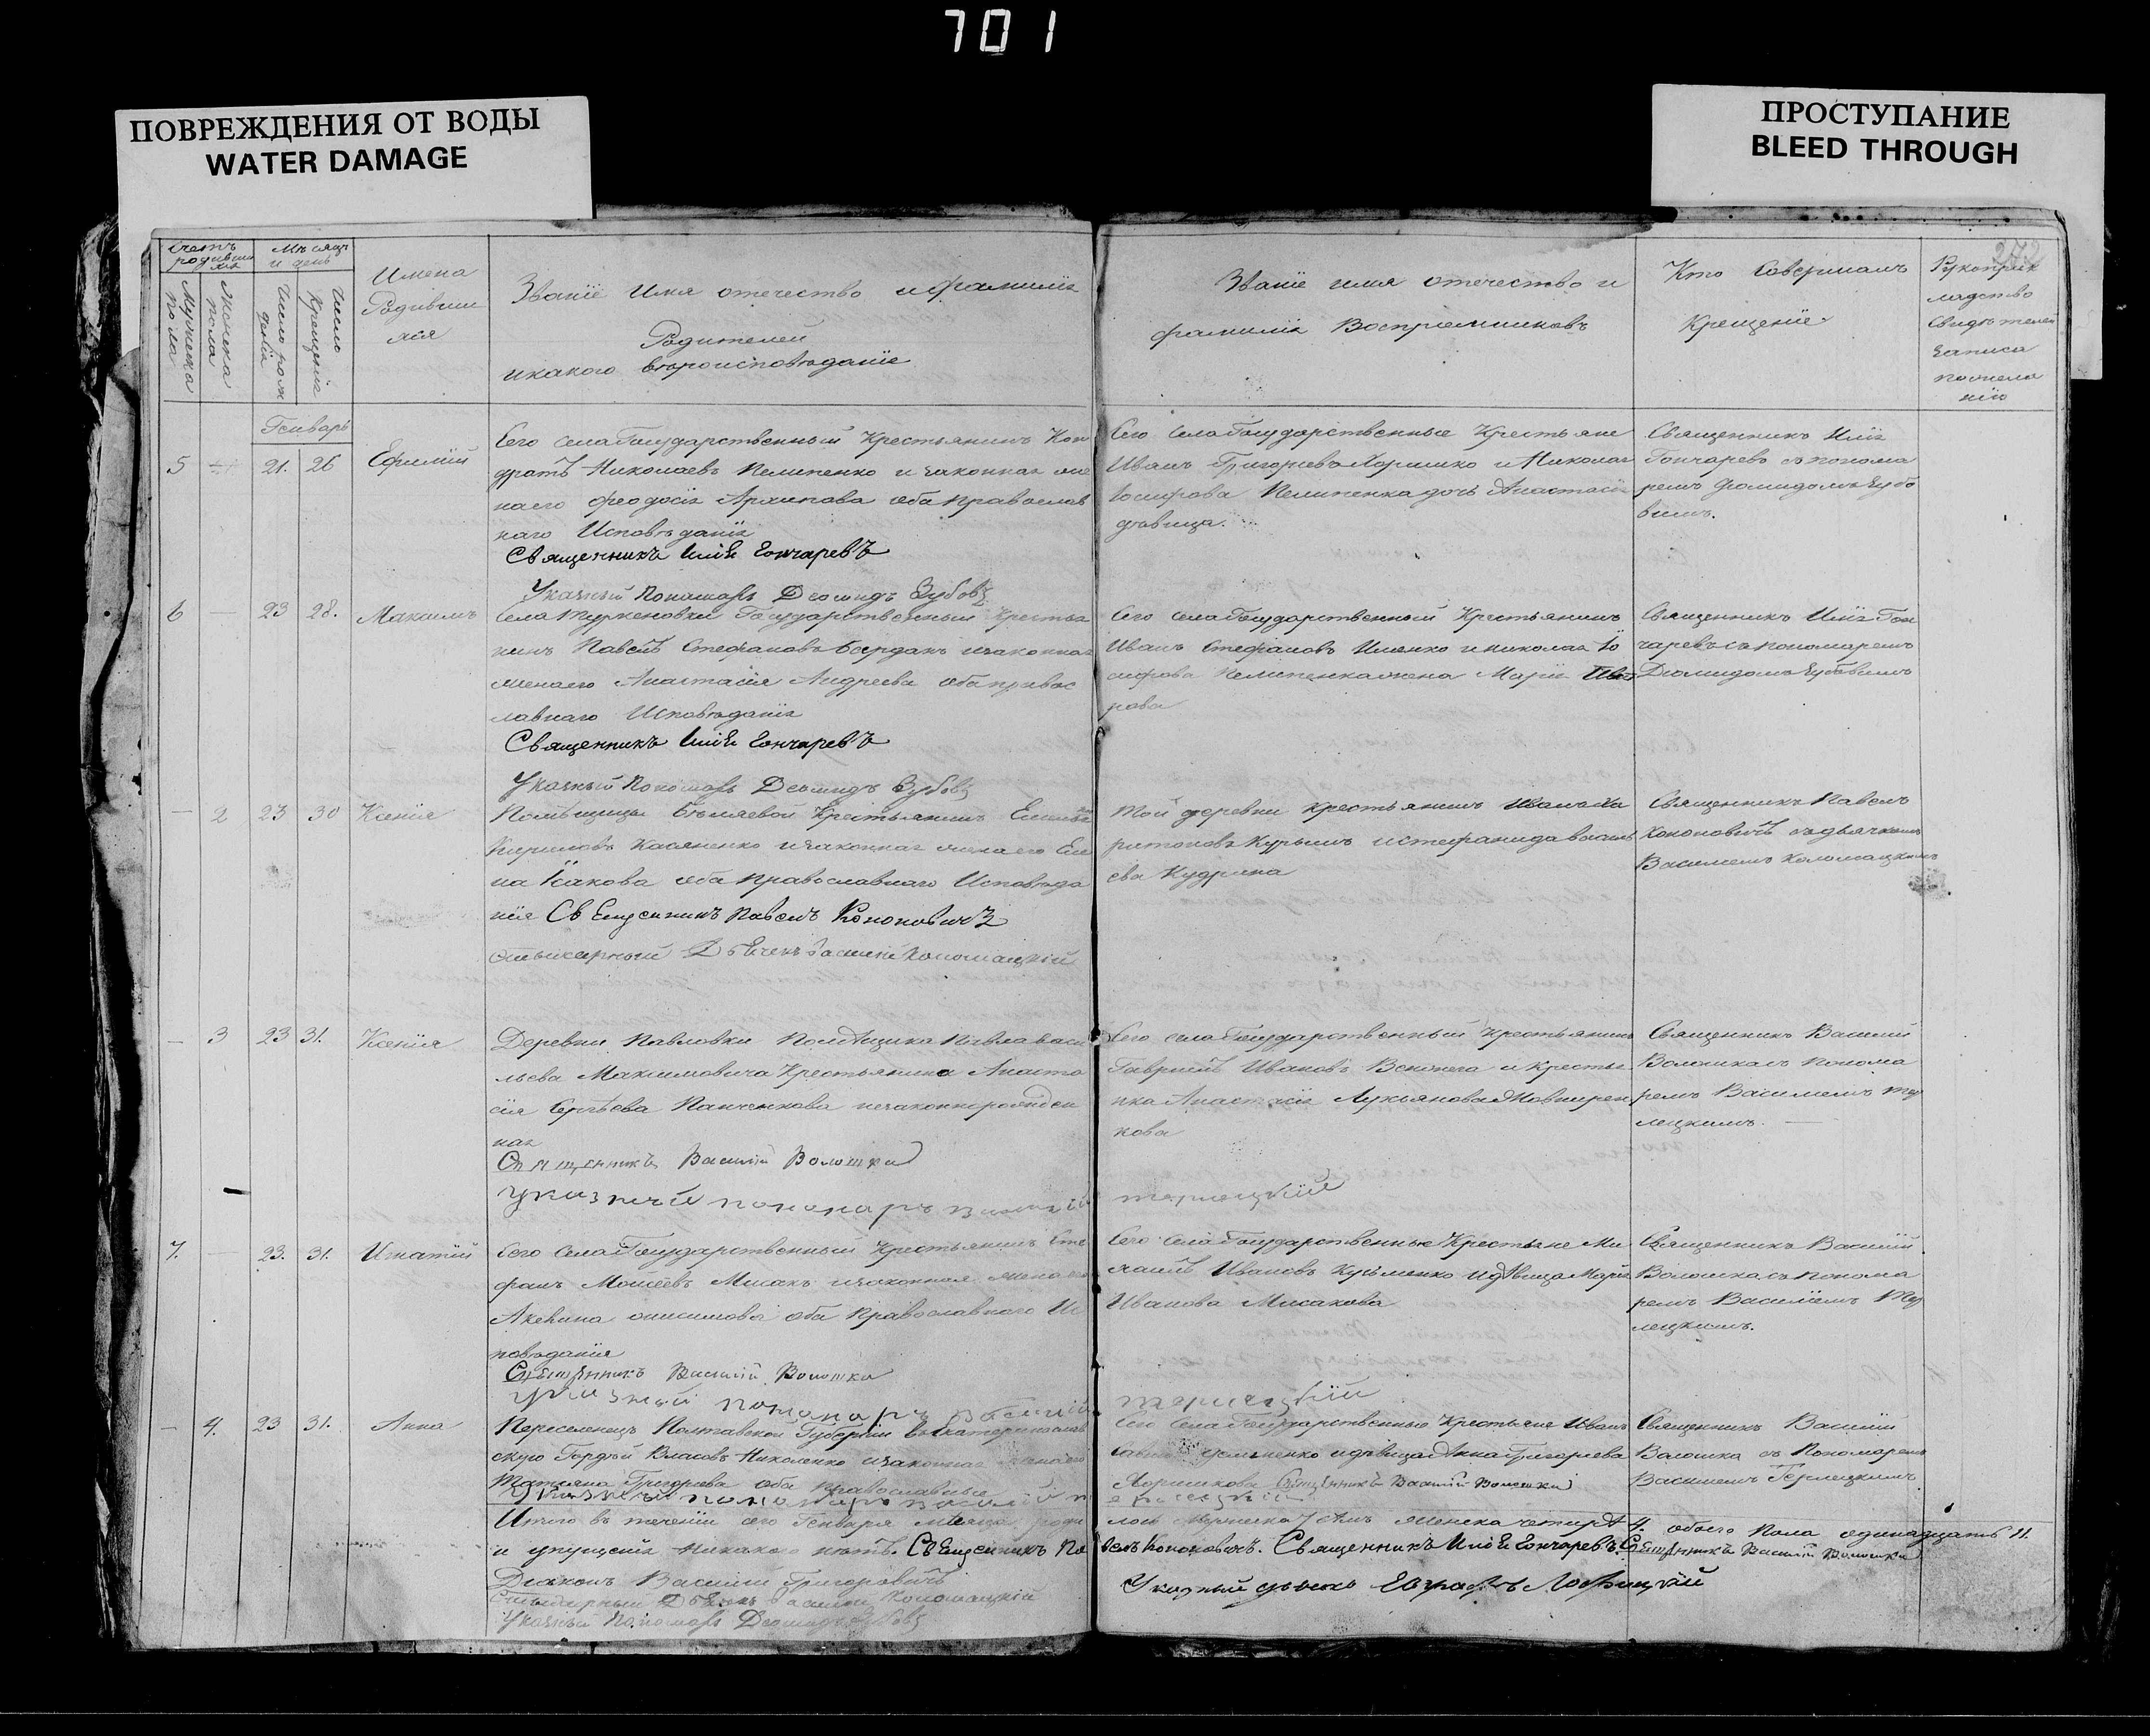 701
ПОВРЕЖДЕНИЯ ОТ ВОДЫ
WATER DAMAGE
ПРОСТУПАНИЕ
BLEED THROUGH
272
Счетъ родивших ся
Мужеска пола
Женска пола
Мѣсяцъ и день
Число рож денія
Число Крещенія
Имена
Родивши
хся
Званіе Имя отечество и фамилія
Родителей
и какого вѣроисповѣданіе
Званіе имя отечество и
фамилія Воспріемниковъ
Кто Совершалъ
Крещеніе
Рукоприк
ладство
Свидѣтелей
записи
по жела
нію
Генварь
5 21. 26 Ефимій
Сего села Государственный Крестьянинъ Кон
дратъ Николаевъ Пелипенко и законная же
на его Феодосія Архипова оба православ
наго Исповѣданія
Священникъ Илія Гончаревъ
Указный Пономарь Диомидъ Зубовъ
Сего села Государственные Крестьяне
Иванъ Григорьевъ Хоришко и Николая
Іосифова Пелипенка дочь Анастасія
дѣвица.
Священникъ Илія
Гончаревъ съ понома
ремъ Диомидомъ Зубо
вымъ.
6 — 23 28. Максимъ
Села Туркеновки Государственный Крестья
нинъ Павелъ Стефановъ Богданъ и законная
жена его Анастасія Андреева оба правос
лавнаго Исповѣданія
Священникъ Илія Гончаревъ
Указный Пономарь Диомидъ Зубовъ
Сего села Государственный Крестьянинъ
Иванъ Стефановъ Ищенко и Николая Іо
сифова Пелипенка жена Марія
рова
Священникъ Илія Гон
чаревъ съ пономаремъ
Диомидомъ Зубовымъ
— 2 23 30 Ксенія
Помѣщицы Бѣляевой Крестьянинъ
Кириловъ Касяненко и законная жена его Еле
на Исакова оба православнаго Исповѣда
нія Священникъ Павелъ Кононовичъ
Стихарный Дьячекъ Василій Коломацкій
Той деревни крестьянинъ Иванъ Ха
ритоновъ Курыпъ и Стефанида Василь
ева Кудрина
Священникъ Павелъ
Кононовичъ съ дьячкомъ
Василіемъ Коломацкимъ
— 3 23 31. Ксенія
Деревни Павловки Помѣщика Павла Васи
льева Максимовича Крестьянина Анаста
сія Сергѣева Панченкова незаконнорожден
ная
Священникъ Василій Волошка
Указный пономарь Василій
Сего села Государственный Крестьянинъ
Гавріилъ Ивановъ и Крестья
нка Анастасія Лукьянова
кова
терлецкій
Священникъ Василій
Волошка съ понома
ремъ Василіемъ Тер
лецкимъ. —
7. — 23. 31. Игнатій
Сего Села Государственный Крестьянинъ Сте
фанъ Моисеевъ Мисакъ и законная жена его
Акелина онисимова оба Православнаго Ис
повѣданія
Священникъ Василій Волошка
указный пономарь Василій
Сего села Государственные Крестьяне Ми
хаилъ Ивановъ Кузьменко и дѣвица Марія
Иванова Мисакова
терлецкій
Священникъ Василій
Волошка съ понома
ремъ Василіемъ Тер
лецкимъ.
— 4. 23 31. Анна
Переселенецъ Полтавской Губерніи въ Екатеринослав
скую Гордѣй Власовъ Николенко и законная жена его
Татьяна Григорьева оба православные
Указный пономарь Василій т
Сего села Государственные Крестьяне Иванъ
и дѣвица Анна Григорьева
Хоришкова Священникъ Василій Волошка
ерлецкій
Священникъ Василій
Волошка съ Пономаремъ
Василіемъ Терлецкимъ
Итого въ теченіи сего Генваря мѣсяца роди
лось мужеска 7 семь женска четыре 4. обоего пола одинадцать 11.
и упущенія никакого нѣтъ. Священникъ Па
велъ Кононовичъ. Священникъ Илія Гончаревъ. Священникъ Василій Волошка
Диаконъ Василій Григоровичъ
Стихарный Дьячекъ Василій Коломацкій
Указный Пономарь Диомидъ Зубовъ
Указный дьячекъ Евграфъ Лофицкій